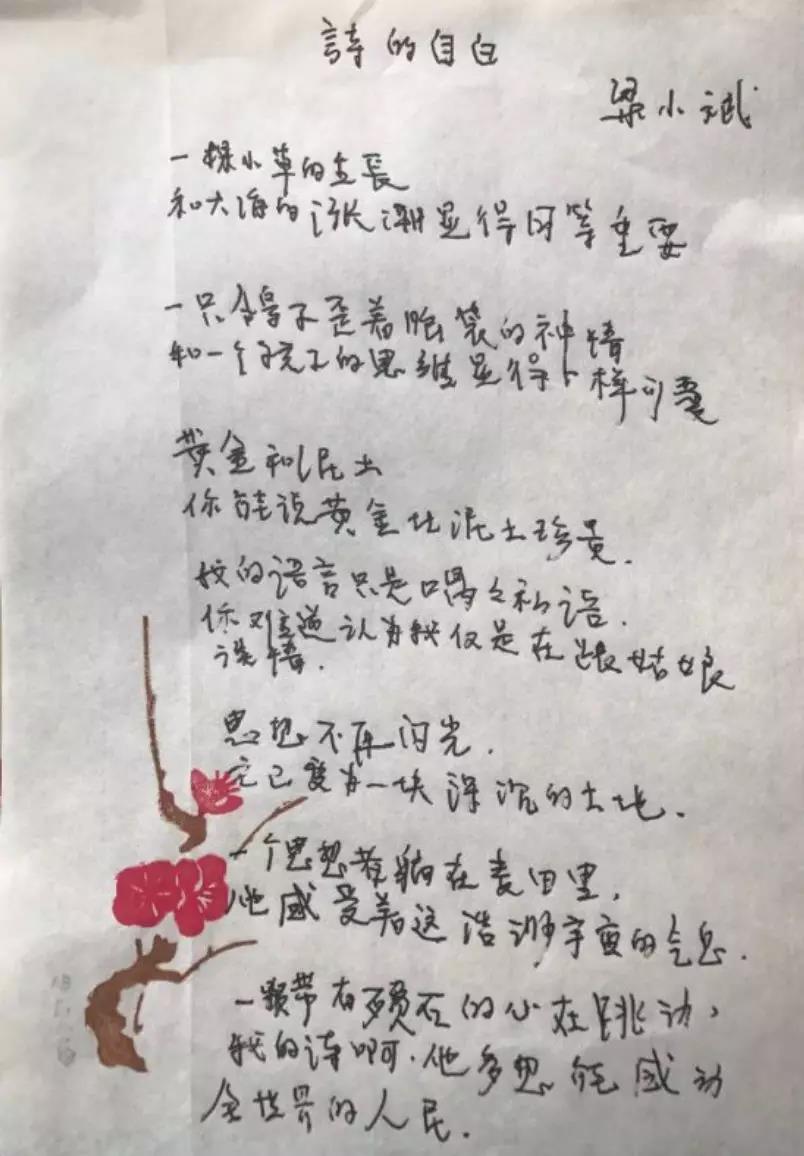 詩的自白
梁小斌
一棵小草的生長
和大海的涨潮显得同等重要
一只鸽子歪着脑袋的神情
和一个孩子的思维显得一样可爱
黄金和泥土
你能说黄金比泥土珍贵.
我的语言只是喁々私语.
你难道认为我仅是在跟姑娘
谈情.
思想不再闪光.
它已变为一块深沉的土地.
一个思想者躺在麦田里,
他感受着这浩渺宇宙的气息.
一颗带有陨石的心在跳动,
我的诗啊,他多想能感动
全世界的人民.